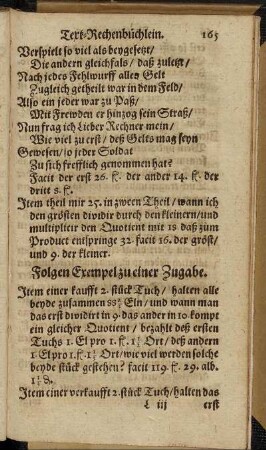 Text-Rechenbüchlein. 165
Verspielt so viel als beygesetzt/
Die andern gleichfals/ daß zuletzt/
Nach jedes Fehlwurff allen Gelt
Zugleich getheilt war in dem Feld/
Also ein jeder war zu Paß/
Mit Frewden er hinzog sein Straß/
Nun frag ich Lieber Rechner mein/
Wie viel zu erst/ deß Gelts mag seyn
Gewesen/ so jeder Soldat
Zu sich frefflich genommen hat?
Facit der erst 26. f. der ander 14. f. der
dritt 8. f.
Item theil mir 25. in zween Theil/ wann ich
den grösten dividir durch den kleinern/ und
multiplicir den Quotient mit 18 daß zum
Product entspringe 32. facit 16. der gröst/
und 9. der kleiner.
Folgen Exempel zu einer Zugabe.
Item einer kaufft 2. stück Tuch/ halten alle
beyde zusammen Eln/ und wann man
das erst dividirt in 9. das ander in 10. kompt
ein gleicher Quotient/ bezahlt deß ersten
Tuchs 1. El pro 1. f. 1½ Ort/ deß andern
1. El pro 1. f. Ort/ wie viel werden solche
beyde stück gestehen? facit 119. f. 29. alb.
Item einer verkaufft 2. stück Tuch/ halten das
L iij erst